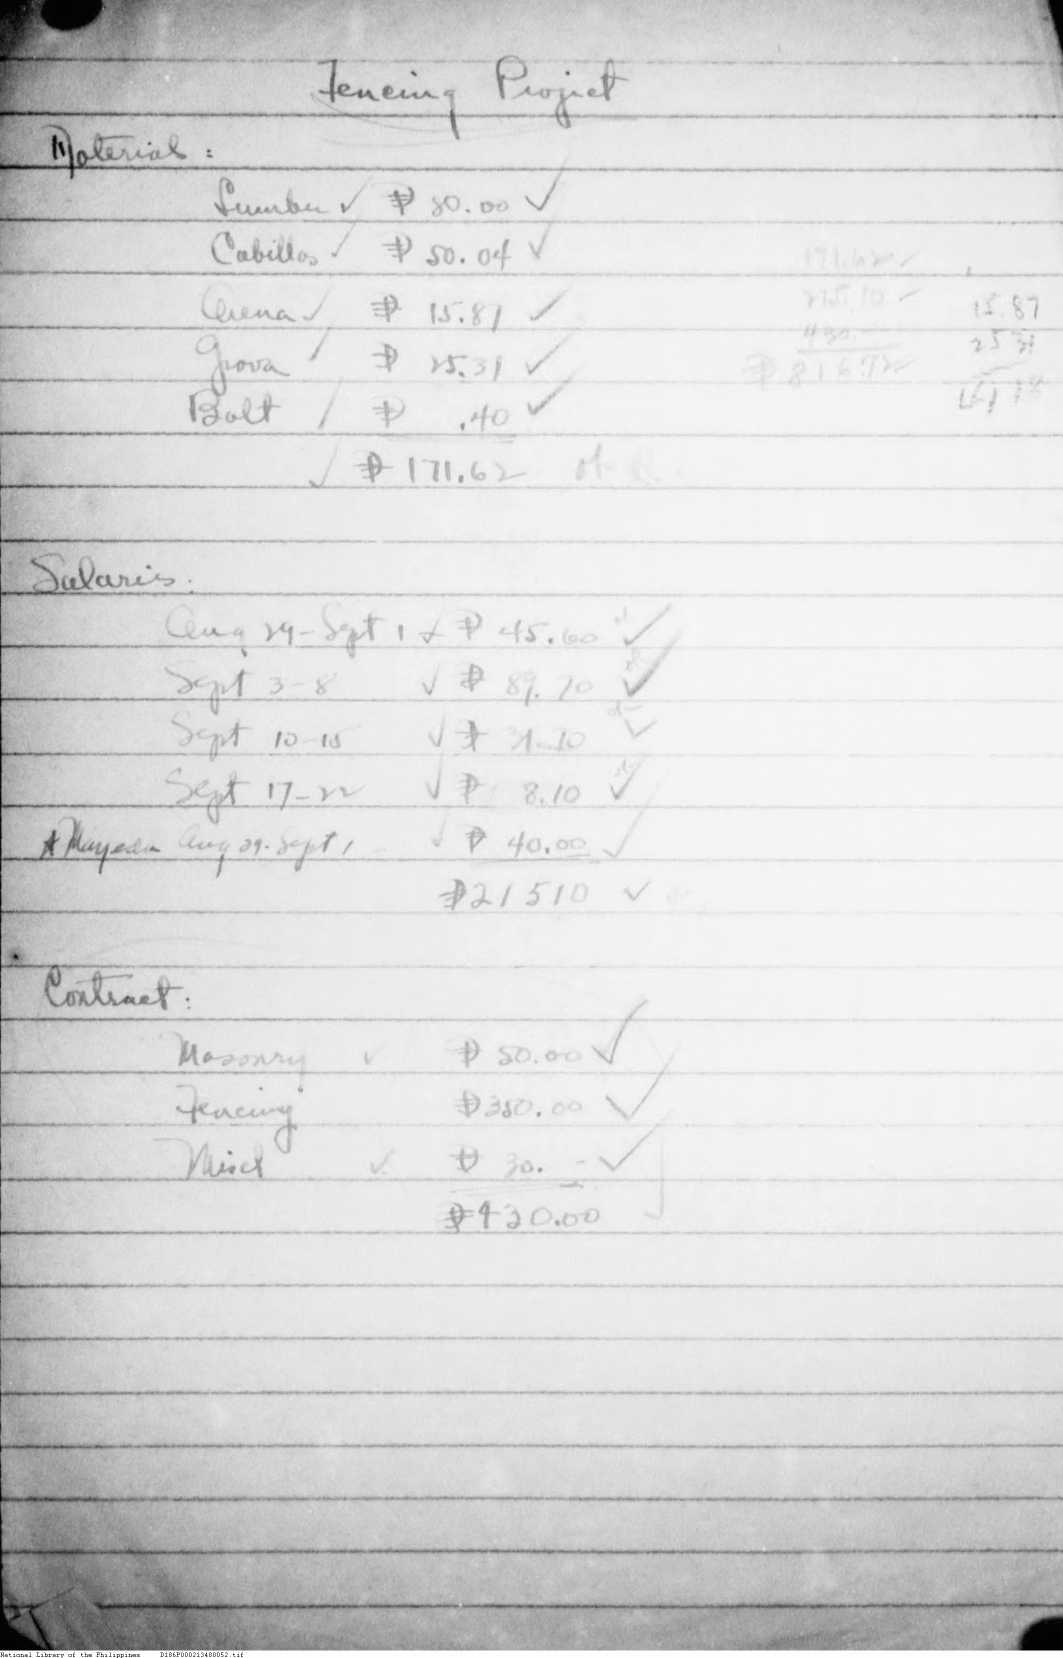 Fencing Project
Material:
Lumber ✓ ₱ 80.00 ✓
Cabillos ✓ ₱ 50.04 ✓
171.62 ✓
Arena ✓ ₱ 15.87 ✓
215.10 ✓
15.87
Grava ✓ ₱ 25.31 ✓
430.—
25 31
₱ 816.72
Bolt / ₱ .40 ✓
✓ ₱ 171.62
Salaries:
Aug 29-Sept 1 ✓ ₱ 45.60 ✓
Sept 3-8 ✓ ₱ 89.70 ✓
Sept 10-15 ✓ ₱ 31.70 ✓
Sept 17-22 ✓ ₱ 8.10 ✓
Aug 29-Sept 1 ✓ ₱ 40.00 ✓
₱21510 ✓
Contract:
Masonry ✓ ₱ 50.00 ✓
Fencing ₱350.00 ✓
Miscl ✓ ₱ 30.- ✓
₱430.00
National Library of the Philippines D186P000213480052.tif